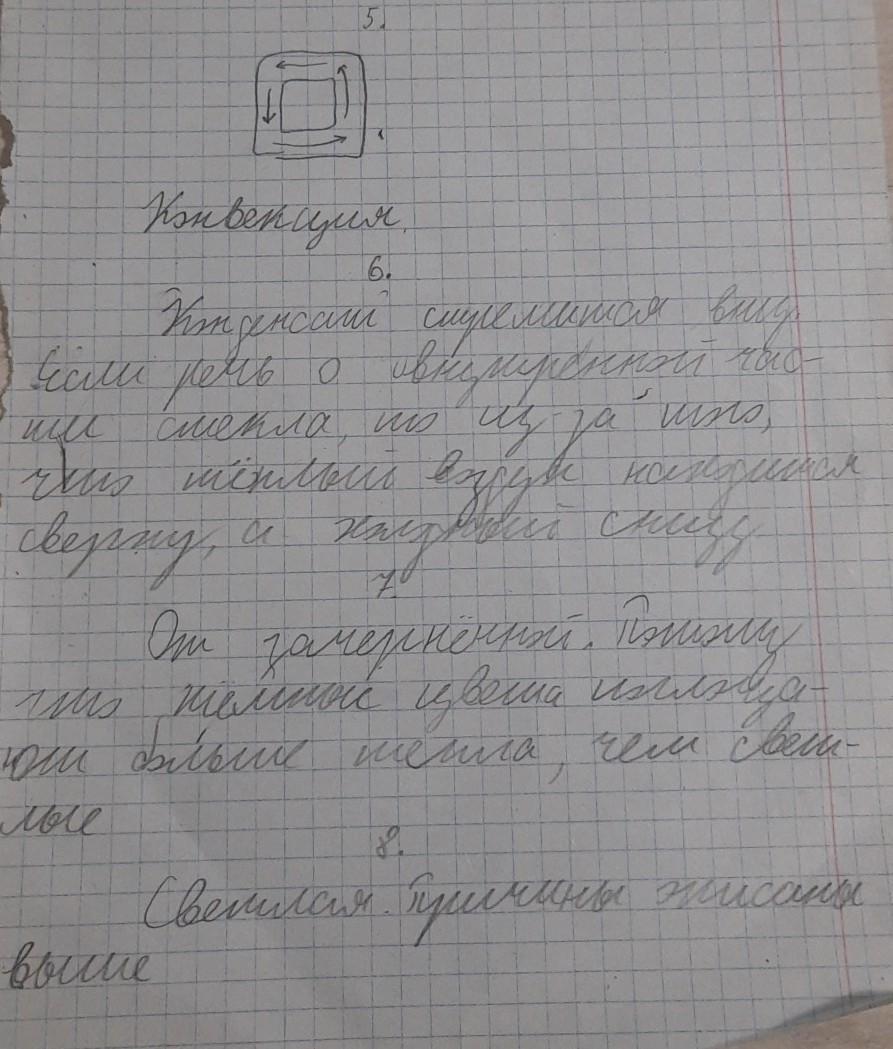 5.
Конвекция.
6.
Конденсат стремится вниз.
Если речь о внутренной час-
ти стекла, то из-за того,
что тёплый воздух находится
сверху, а холодный снизу
7.
От зачернённой. Потому
что тёмные цвета поглоща-
ют больше тепла, чем свет-
лые
8.
Светлая. Причины описаны
выше